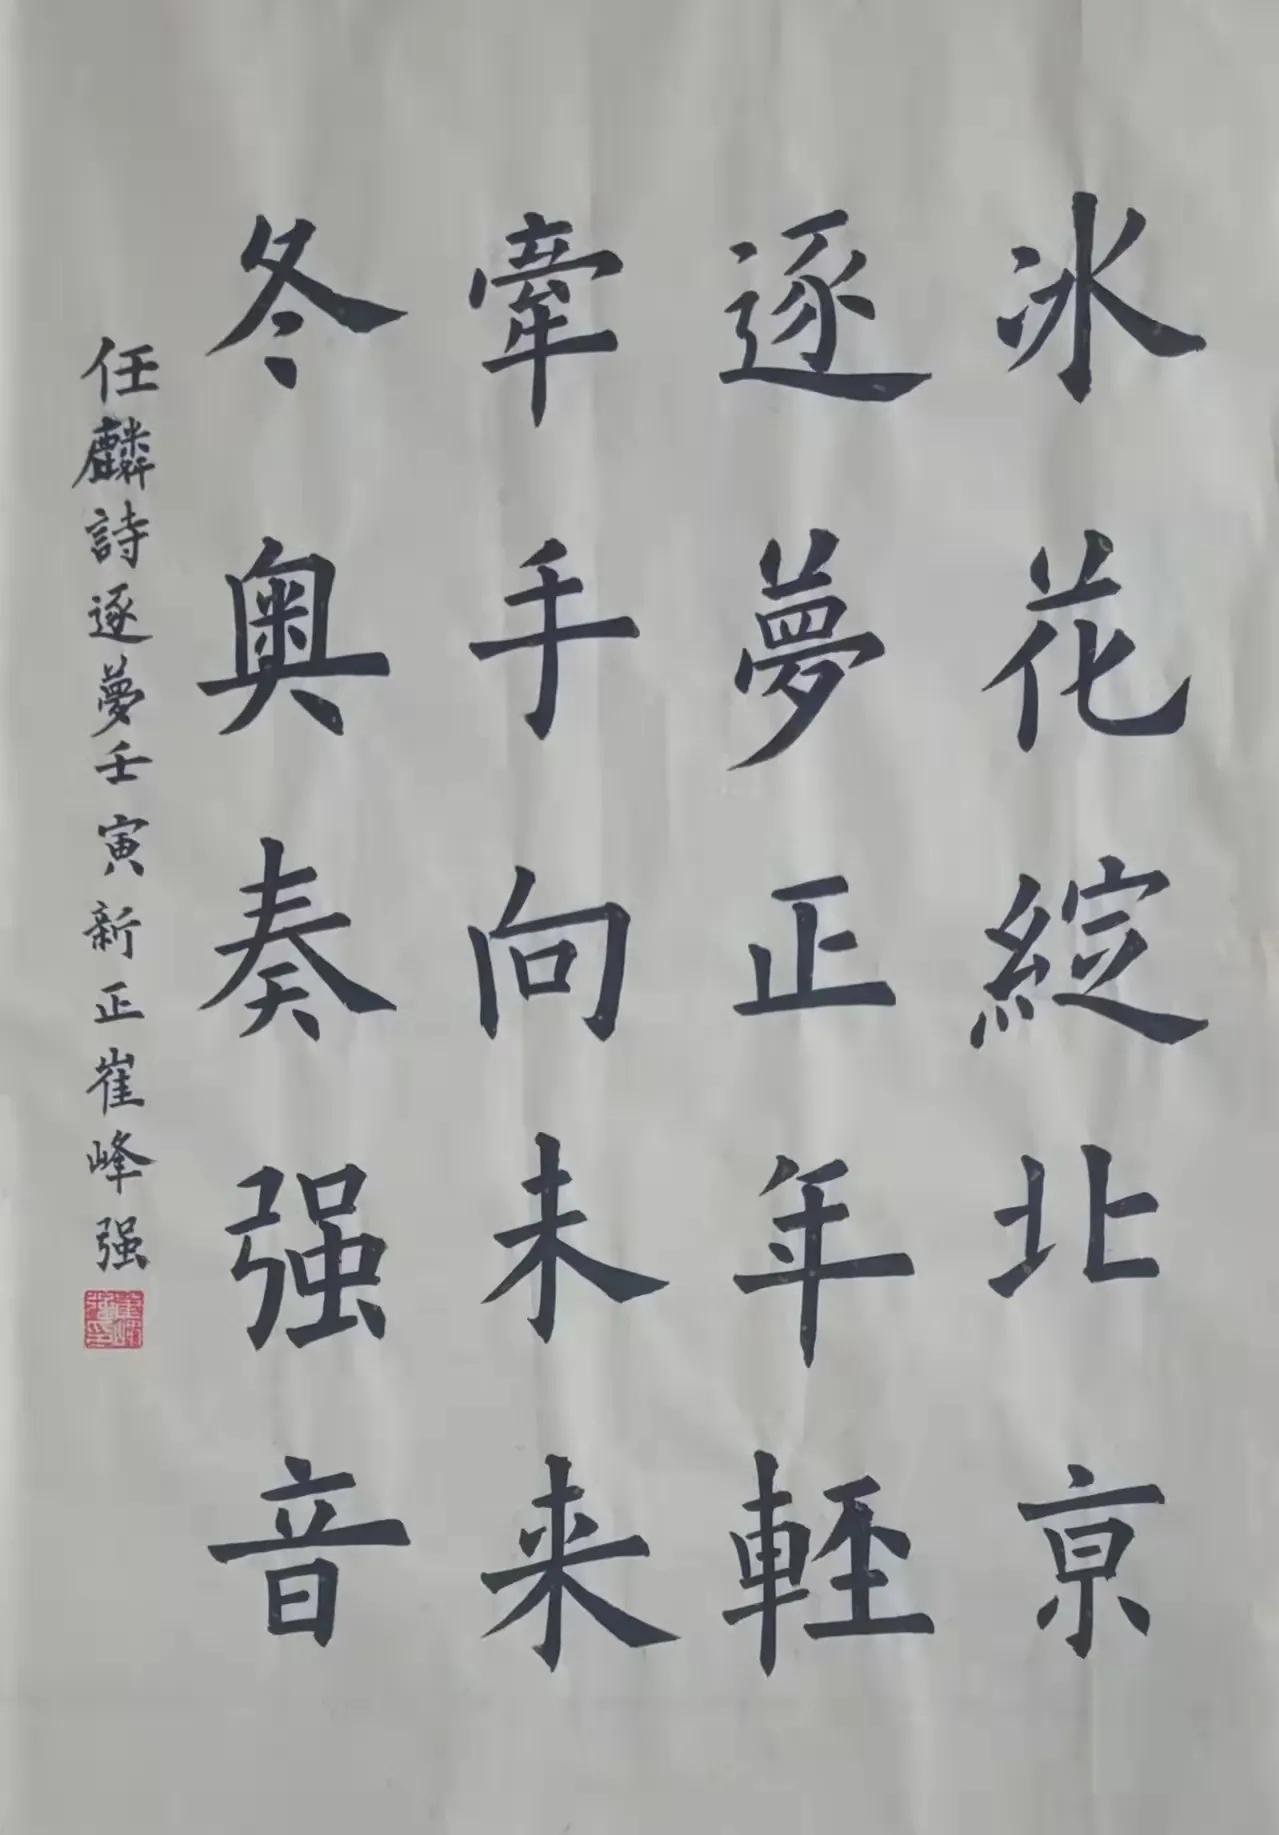 冰花綻北京
逐夢正年輕
牽手向未来
冬奥奏强音
任麟詩逐夢壬寅新正崔峰强
崔峰强印